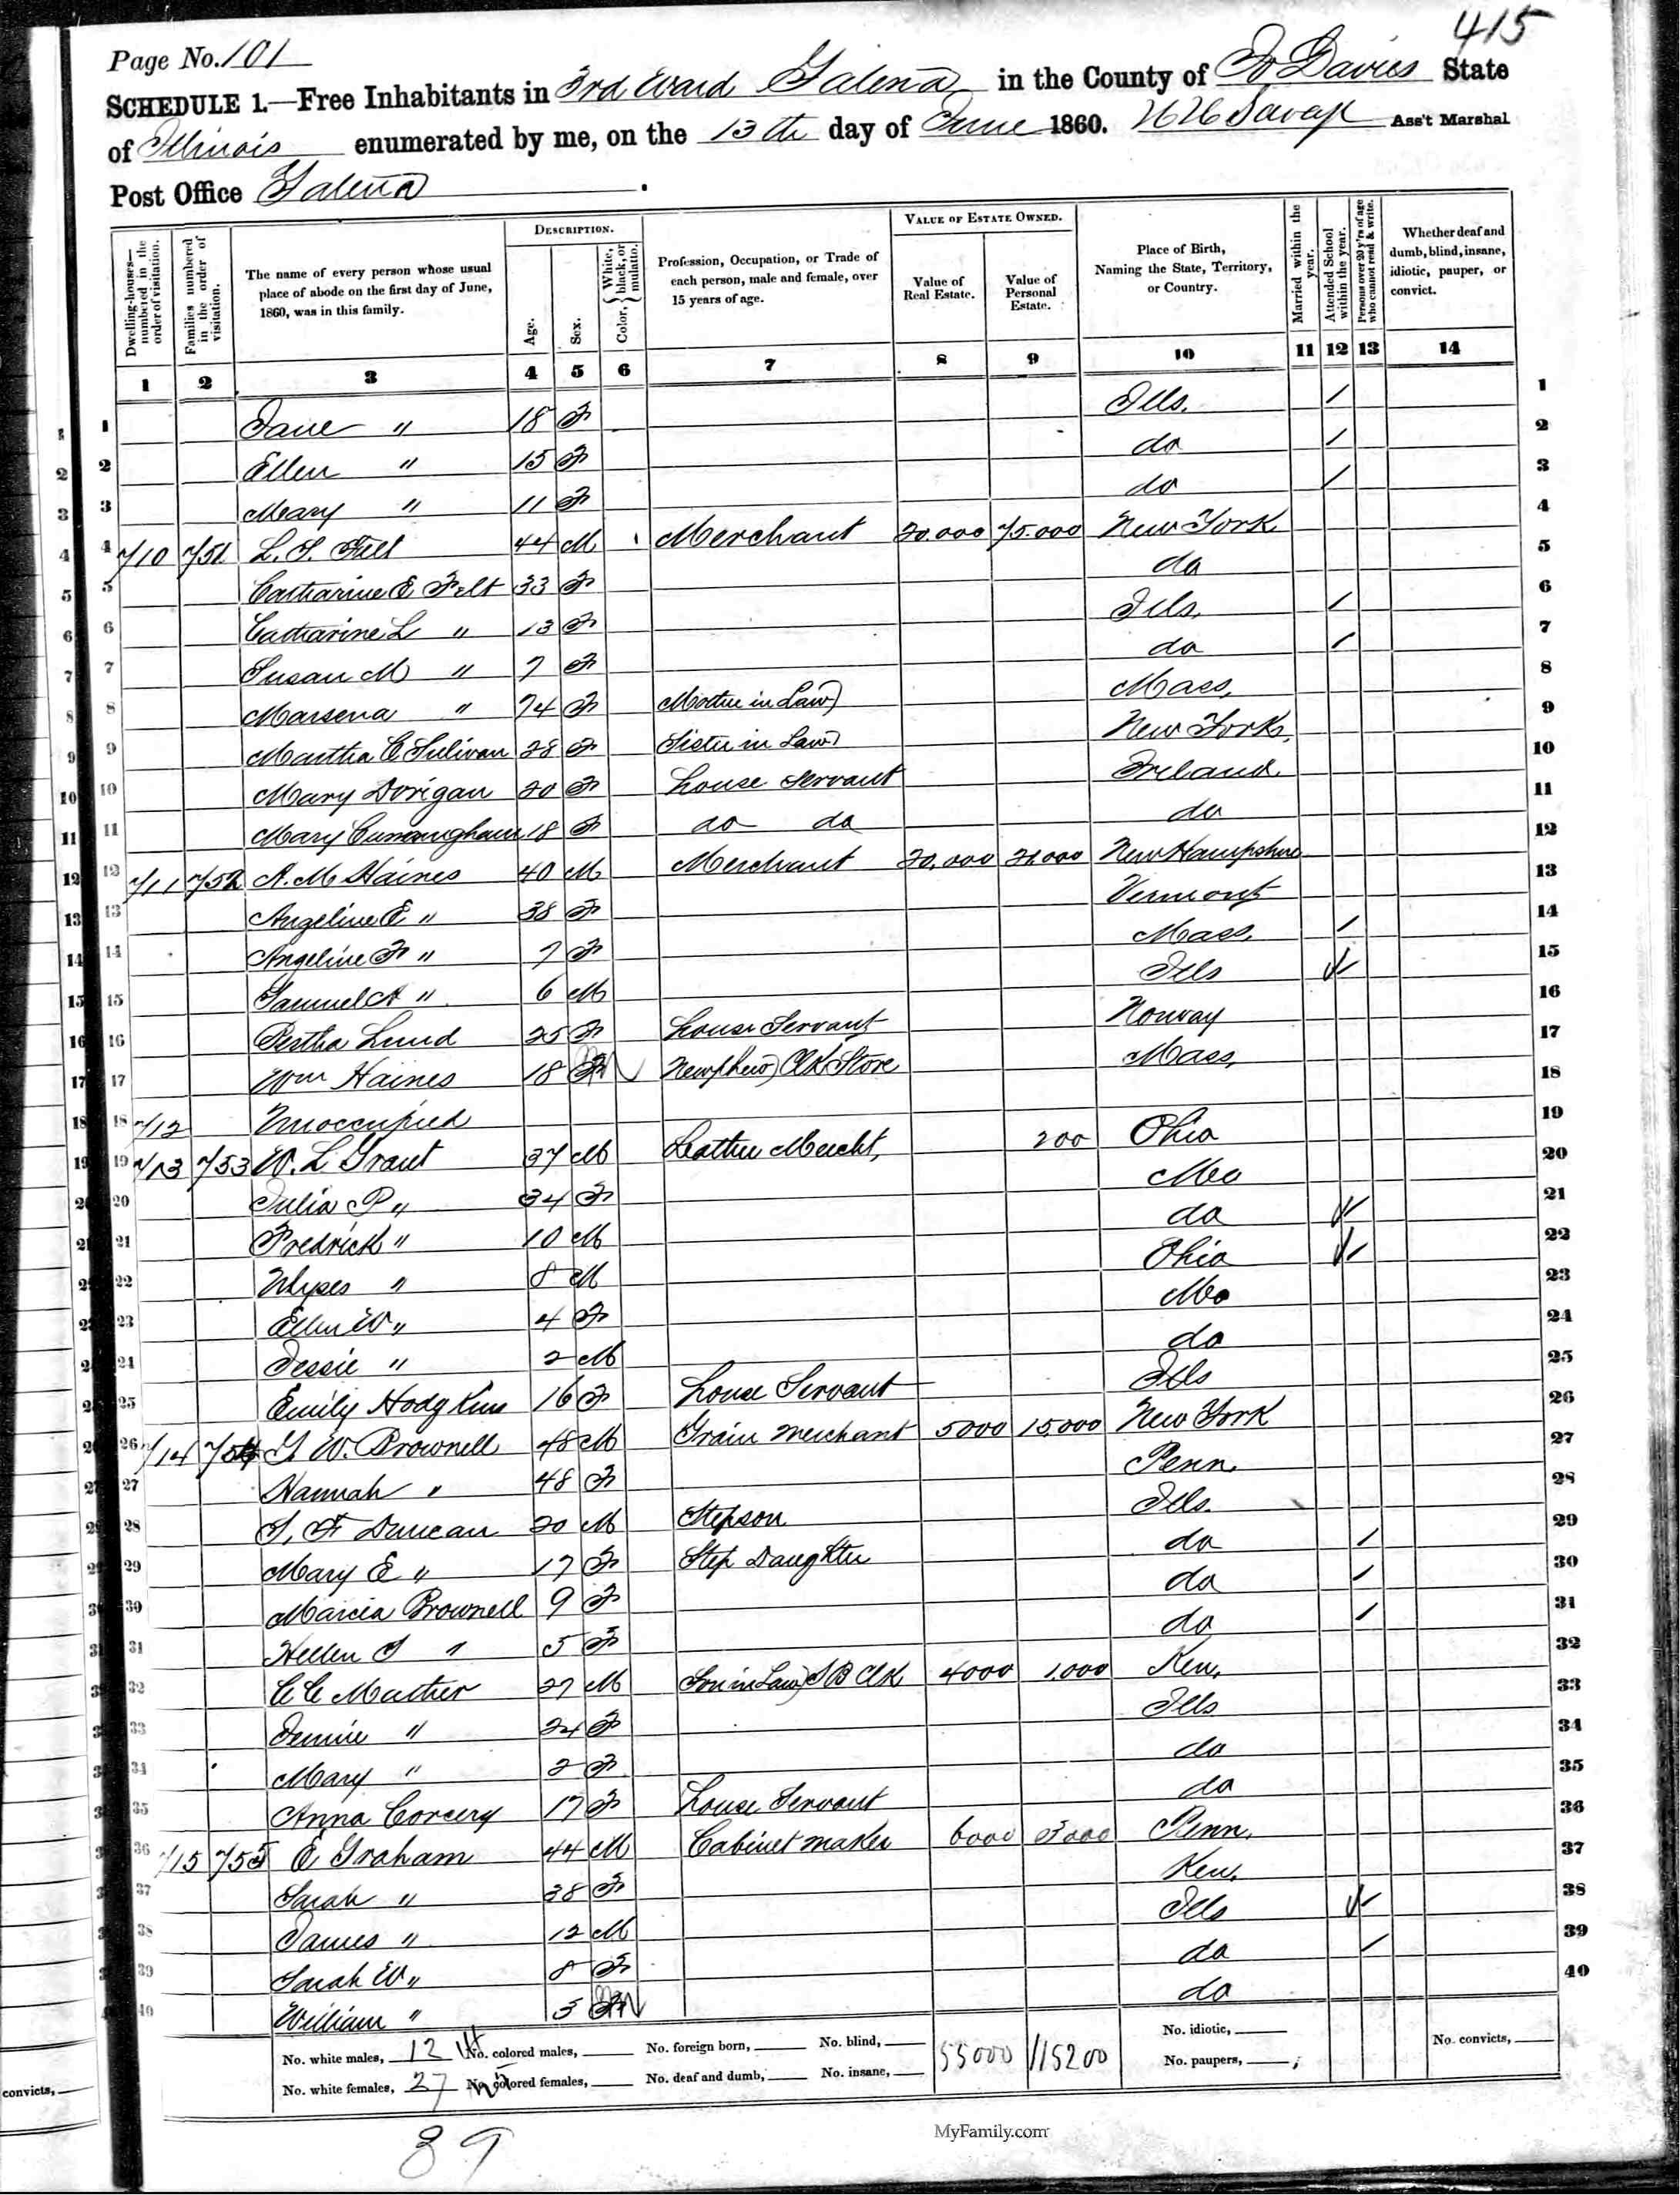 415
Page No. 101
SCHEDULE 1.—Free Inhabitants in 3rd Ward Galena in the County of Jo Davies State
of Illinois enumerated by me, on the 13th day of June 1860. Ass't Marshal
Post Office Galena.
Dwelling-houses—numbered in the order of visitation.
Families numbered in the order of visitation.
The name of every person whose usual place of abode on the first day of June, 1860, was in this family.
DESCRIPTION.
Age.
Sex.
Color, White, black, or mulatto.
Profession, Occupation, or Trade of each person, male and female, over 15 years of age.
VALUE OF ESTATE OWNED.
Value of Real Estate.
Value of Personal Estate.
Place of Birth, Naming the State, Territory, or Country.
Married within the year.
Attended School within the year.
Persons over 20 y'rs of age who cannot read & write.
Whether deaf and dumb, blind, insane, idiotic, pauper, or convict.
1 2 3 4 5 6 7 8 9 10 11 12 13 14
1 Jane " 18 F Ills. / 1
2 Ellen " 15 F do / 2
3 Mary " 11 F do / 3
4 710 751 L. S. Felt 44 M Merchant 20.000 75.000 New York 4
5 Catharine E Felt 33 F do 5
6 Catharine L " 13 F Ills. / 6
7 Susan M " 7 F do / 7
8 Marsena " 74 F Mother in Law Mass. 8
9 Martha C Sulivan 28 F Sister in Law New York. 9
10 Mary Dorigan 20 F House Servant Ireland. 10
11 Mary Cunningham 18 F do do do 11
12 711 752 A. M Haines 40 M Merchant 20,000 21000 New Hampshire 12
13 Angeline E " 38 F Vermont 13
14 Angeline F " 7 F Mass. / 14
15 Samuel A " 6 M Ills / 15
16 Lund 25 F House Servant Norway 16
17 Wm Haines 18 M Newphew Clk Store Mass, 17
18 712 Unoccupied 18
19 713 753 W. L Grant 37 M Leather Mercht, 200 Ohio 19
20 Julia P " 34 F Mo 20
21 Fredrick " 10 M do / 21
22 Ulyses " 8 M Ohio / 22
23 Ellen W " 4 F Mo 23
24 Jessie " 2 M do 24
25 Emily Hodgkins 16 F House Servant Ills 25
26 714 754 W. Brownell 48 M Grain Merchant 5000 15,000 New York 26
27 Hannah " 48 F Penn. 27
28 Duncan 20 M Stepson Ills. 28
29 Mary E " 17 F Step Daughter do / 29
30 Marcia Brownell 9 F do / 30
31 Hellen " 5 F do / 31
32 C C Mather 27 M Son in Law S B Clk 4000 1,000 Ken. 32
33 Jennie " 24 F Ills 33
34 Mary " 2 F do 34
35 Anna Corcery 17 F House Servant do 35
36 715 755 E Graham 44 M Cabinet maker 6000 3000 Penn. 36
37 Sarah " 38 F Ken. 37
38 James " 12 M Ills / 38
39 Sarah W " 8 F do / 39
40 William " 5 M do 40
No. white males, 12 14 No. colored males, No. foreign born, No. blind, 55000 115200 No. idiotic, No. convicts,
No. white females, 27 25 No. colored females, No. deaf and dumb, No. insane, No. paupers,
convicts,
89
MyFamily.com